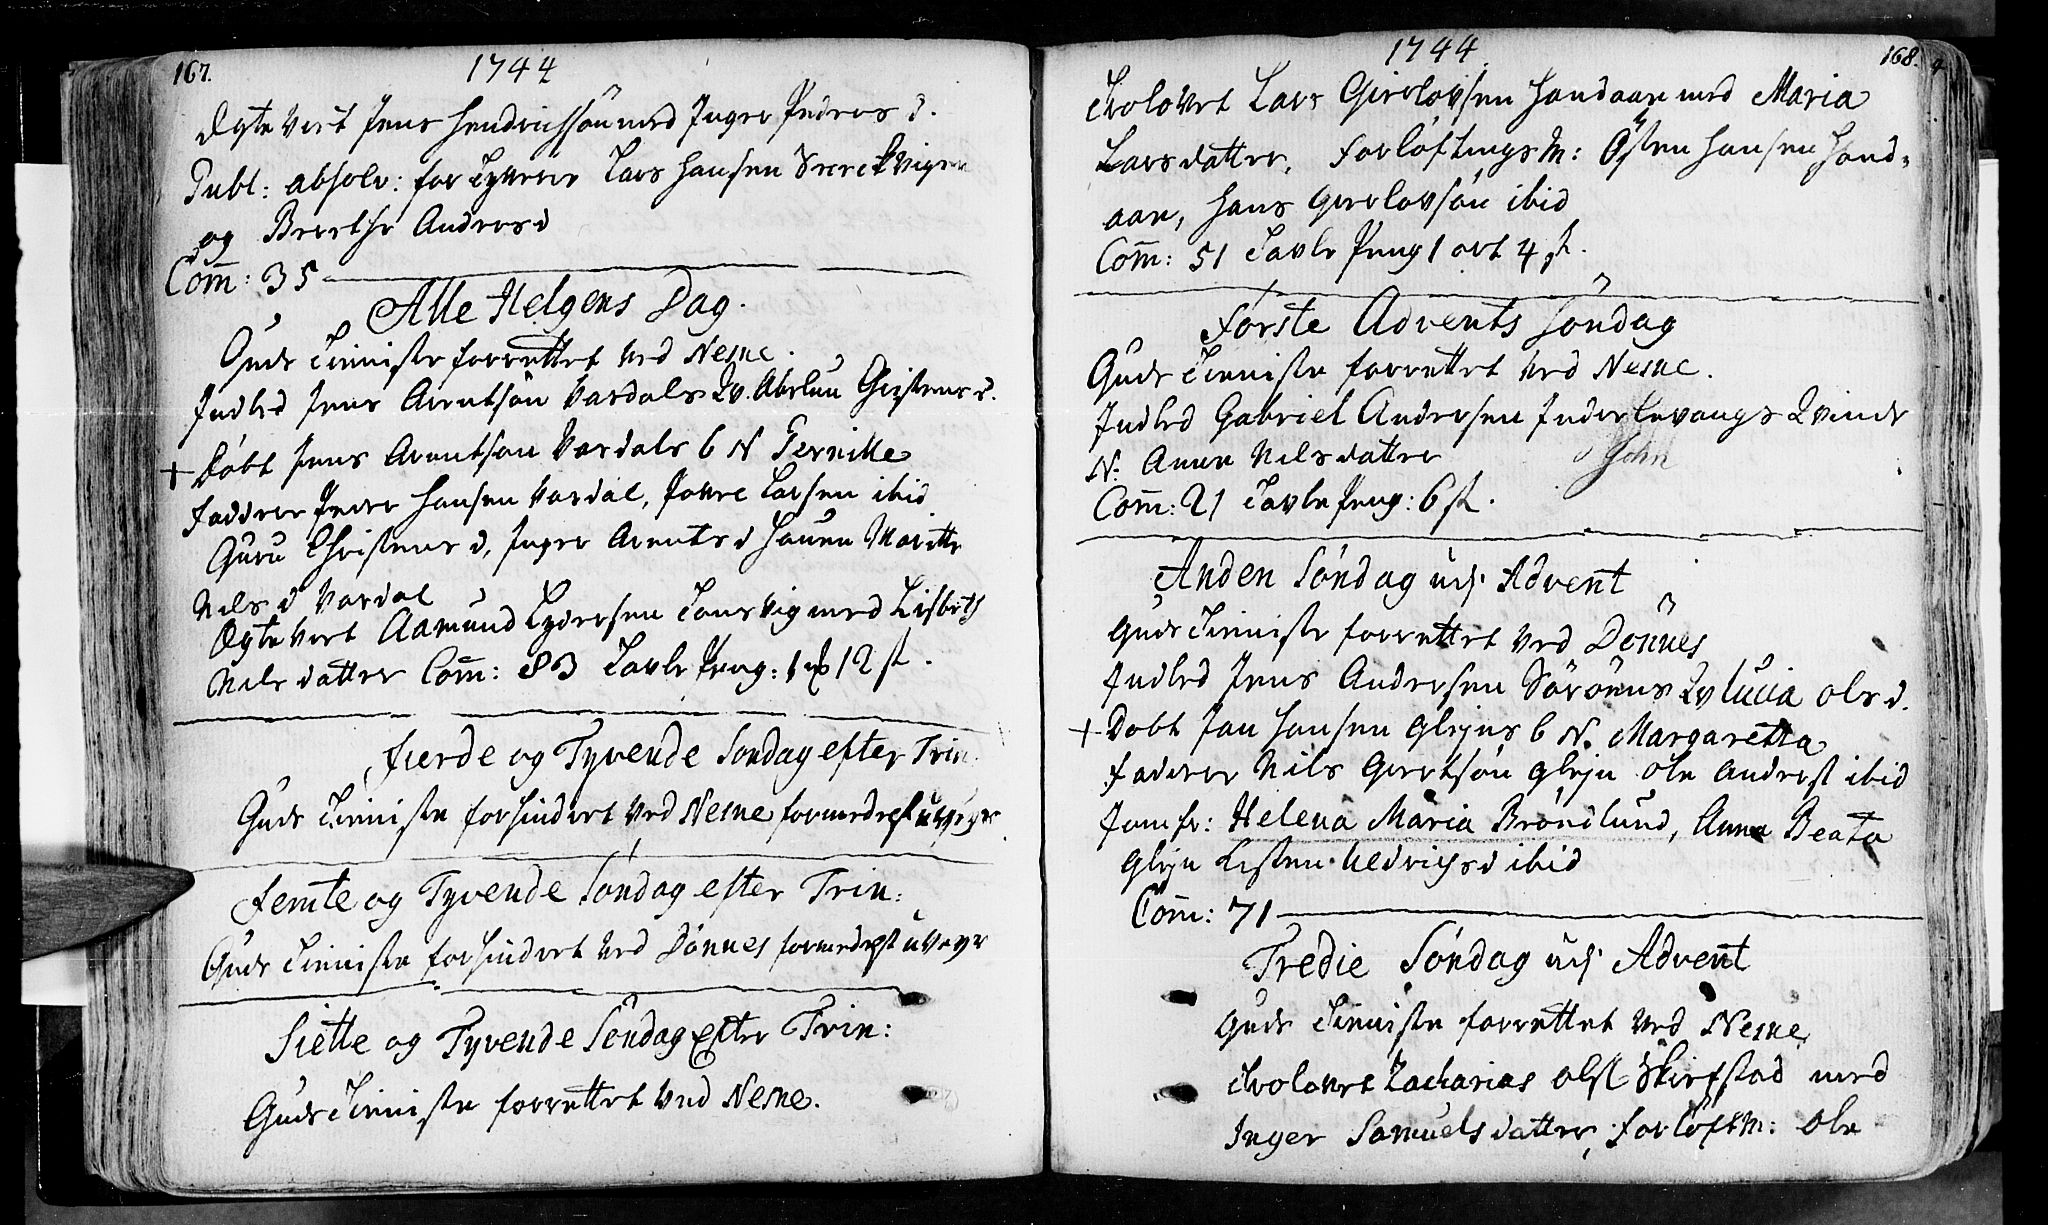 167.
1744
Ægteviet Jens Hendrichssön med Inger Peders d.
Publ: absolv: for Leyerm Lars Hansen
og Berethe Anders d
Com̄: 35
Alle Helgens Dag.
Guds Tienniste forrettet ved Nesne.
Indled Jens Arentsön Vardals Qv. Abelun Gistens d.
+ Döbt Jens Arentsön Vardals b N Pernille
Faddere Peder Hansen Vardal, Jon Larsen ibid
Guru Christens d, Inger Arents d Hauen Maritte
Nils d Vardal
Ægteviet Aamund Pedersen Tonsvig med Lisbeth
Nils datter Com̄: 83 Tavle Peng: 1 12 sk.
Fierde og Tyvende Söndag efter Trin:
Guds Tienniste forhindret ved Nesne formedelst uveyr
Femte og Tyvende Söndag efter Trin:
Guds Tienniste forhindret ved Dönnes formedelst uveyr
Siette og Tyvende Söndag Efter Trin:
Guds Tienniste forrettet ved Nesne.
1744.
168.
Trolovet Lars Gierlovsen Handaan med Maria
Larsdatter, Forlöftningsm: Östen Hansen Hand-
aan, Hans Gierlovsön ibid
Com̄: 51 Tavle Peng 1 ort 4 sk.
Förste Advents Söndag
Guds Tienniste forrettet ved Nesne.
Indled Gabriel Andersen Inderlevangs Qvinde
N. Anne Nilsdatter
John
Com̄: 21 Tavle Peng: 6 sk.
Anden Söndag udj Advent
Guds Tienniste forrettet ved Dönnes
Indled Jens Andersen Söröens Qv Lucia Ols d.
+ Döbt Jan Hansen Glejns b N. Margaretta
Faderer Nils Geertsön Glejn Ole Anders ibid
Jomfr: Helena Maria Bröndlund, Anna Beata
Glejn Listen Uldrichs d ibid
Com̄: 71
Tredie Söndag udj Advent
Guds Tienniste forrettet ved Nesne
Trolovet Zacharias Ols med
Inger Samuels datter, Forlöftm: Ole